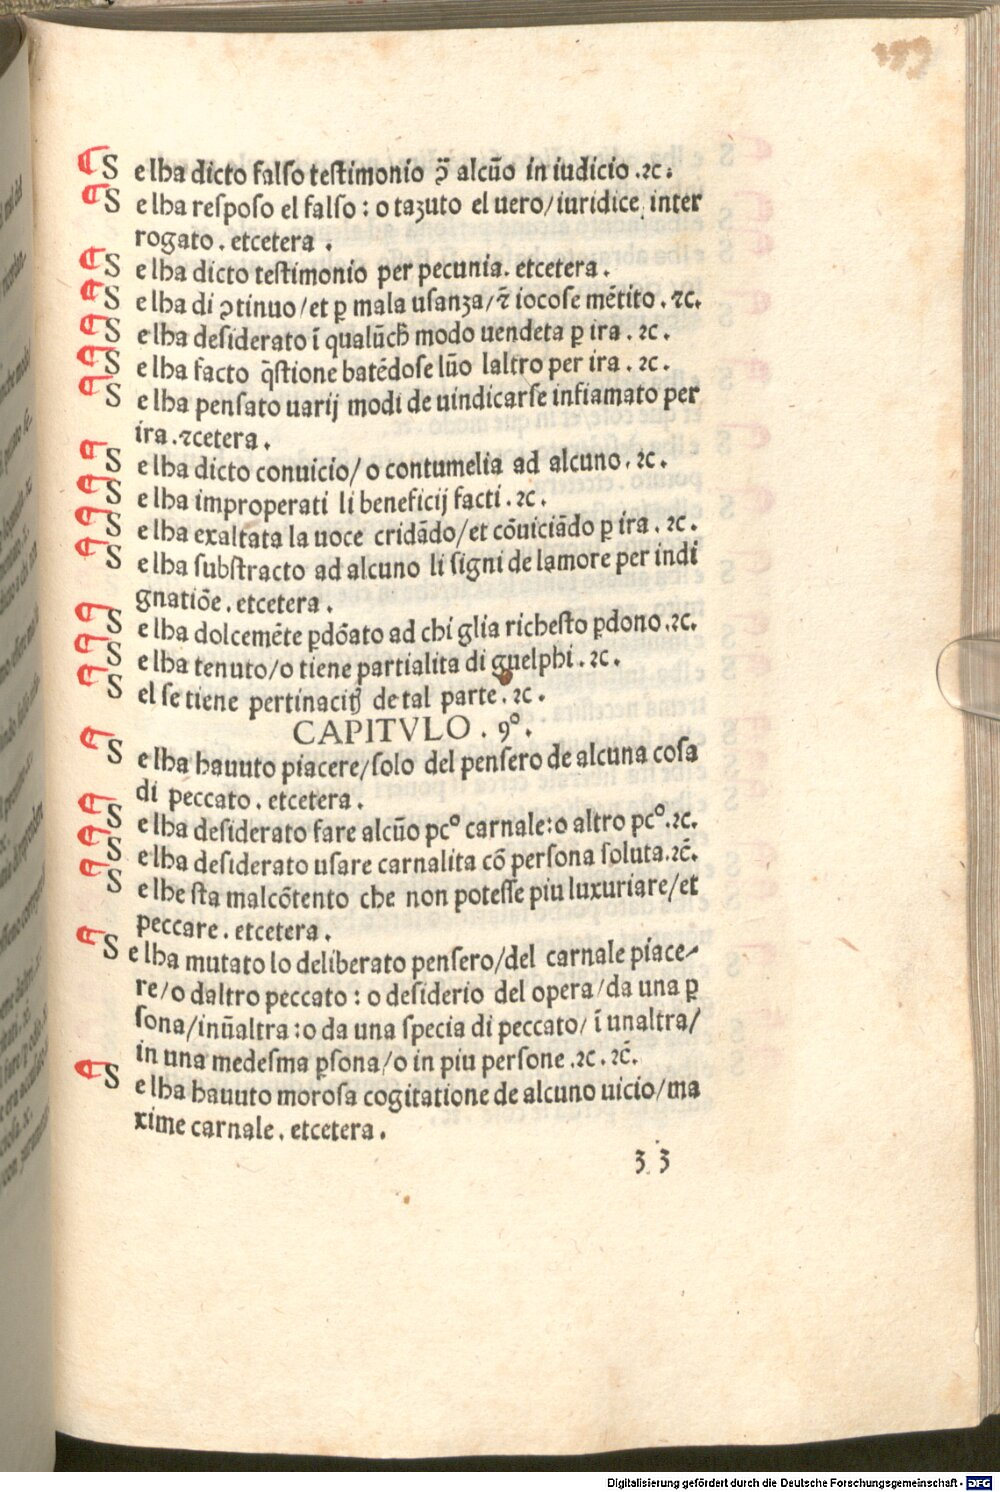 ¶ S e lha dicto falso testimonio ꝯ̃ alcūo in iudicio .ꝛc:
¶ S e lha resposo el falso : o tazuto el uero/iuridice inter
rogato . etcetera .
¶ S e lha dicto testimonio per pecunia. etcetera .
¶ S e lha di ꝯtinuo/et ꝑ mala usanza/⁊̃ iocose mētito . ⁊c.
¶ S e lha desiderato ī qualūcħ modo uendeta ꝑ ira . ꝛc .
¶ S e lha facto q̄stione batēdose lūo laltro per ira . ꝛc .
¶ S e lha pensato uarij modi de uindicarse infiamato per
ira .⁊cetera .
¶ S e lha dicto conuicio/o contumelia ad alcuno . ꝛc .
¶ S e lha improperati li beneficij facti . ꝛc .
¶ S e lha exaltata la uoce cridādo/et cōuiciādo ꝑ ira . ꝛc .
¶ S e lha substracto ad alcuno li signi de lamore per indi
gnatiōe . etcetera .
¶ S e lha dolcemēte ꝑdōato ad chi glia richesto ꝑdono .ꝛc.
¶ S e lha tenuto/o tiene partialita di guelphi . ꝛc .
¶ S el se tiene pertinacit͛ de tal parte . ꝛc .
CAPITVLO . 9º .
¶ S e lha hauuto piacere/solo del pensero de alcuna cosa
di peccato . etcetera .
¶ S e lha desiderato fare alcūo pcº carnale:o altro pcº.ꝛc.
¶ S e lha desiderato usare carnalita cō persona soluta.ꝛc̄.
¶ S e lhe sta malcōtento che non potesse piu luxuriare/et
peccare . etcetera .
¶ S e lha mutato lo deliberato pensero/del carnale piace⸗
re/o daltro peccato : o desiderio del opera/da una ꝑ
sona/inūaltra :o da una specia di peccato/ ī unaltra/
in una medesma ꝑsona/o in piu persone .ꝛc . ꝛc̄.
¶ S e lha hauuto morosa cogitatione de alcuno uicio/ma
xime carnale . etcetera .
3 3
Digitalisierung gefördert durch die Deutsche Forschungsgemeinschaft - DFG